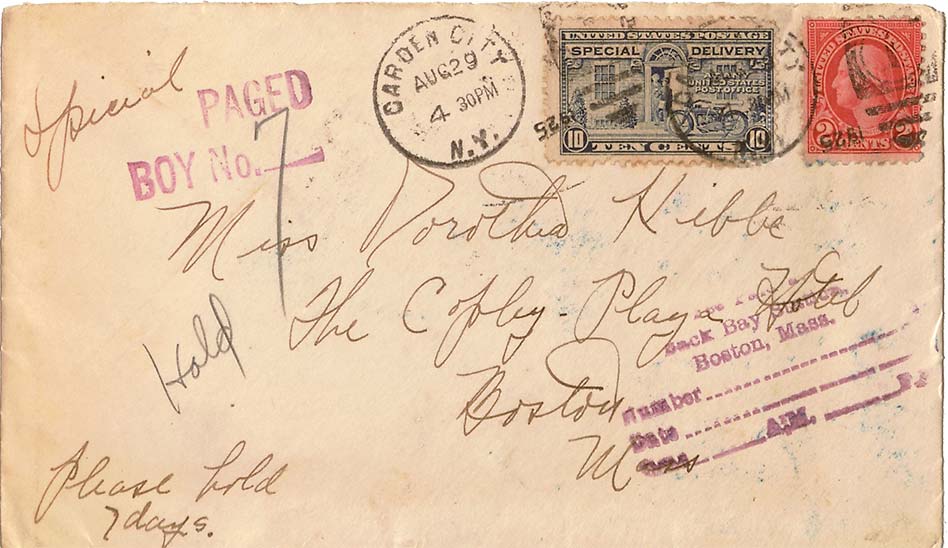 Special
PAGED
BOY No. 7
GARDEN CITY
AUG 29
4 30PM
N.Y.
1925
UNITED STATES POSTAGE
SPECIAL DELIVERY
AT ANY
UNITED STATES
POST OFFICE
10 TEN CENTS 10
UNITED STATES POSTAGE
2 CENTS 2
1925
Miss Dorothea Kibbe
The Copley-Plaza Hotel
Boston
Mass
Hold
Back Bay Station,
Boston, Mass.
Number
Date
A.M.
Please hold
7 days.